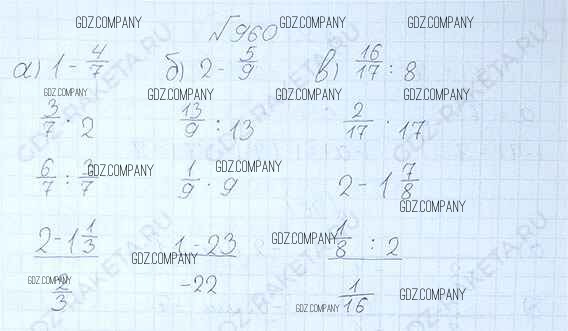 GDZ.COMPANY √960 GDZ.COMPANY GDZ.COMPANY
а) 1 - 4/7 б) 2 - 5/9 в) 16/17 : 8
GDZ.COMPANY GDZ.COMPANY GDZ.COMPANY
3/7 · 2 13/9 : 13 2/17 · 17
6/7 : 2/7 GDZ.COMPANY 1/9 · 9 GDZ.COMPANY 2 - 1 7/8
GDZ.COMPANY
2 - 1 1/3 1 - 23 GDZ.COMPANY 1/8 : 2
GDZ.COMPANY
GDZ.COMPANY 2/3 -22 1/16 GDZ.COMPANY
GDZ.COMPANY
GDZ-RAKETA.RU
GDZ-RAKETA.RU
GDZ-RAKETA.RU
GDZ-RAKETA.RU